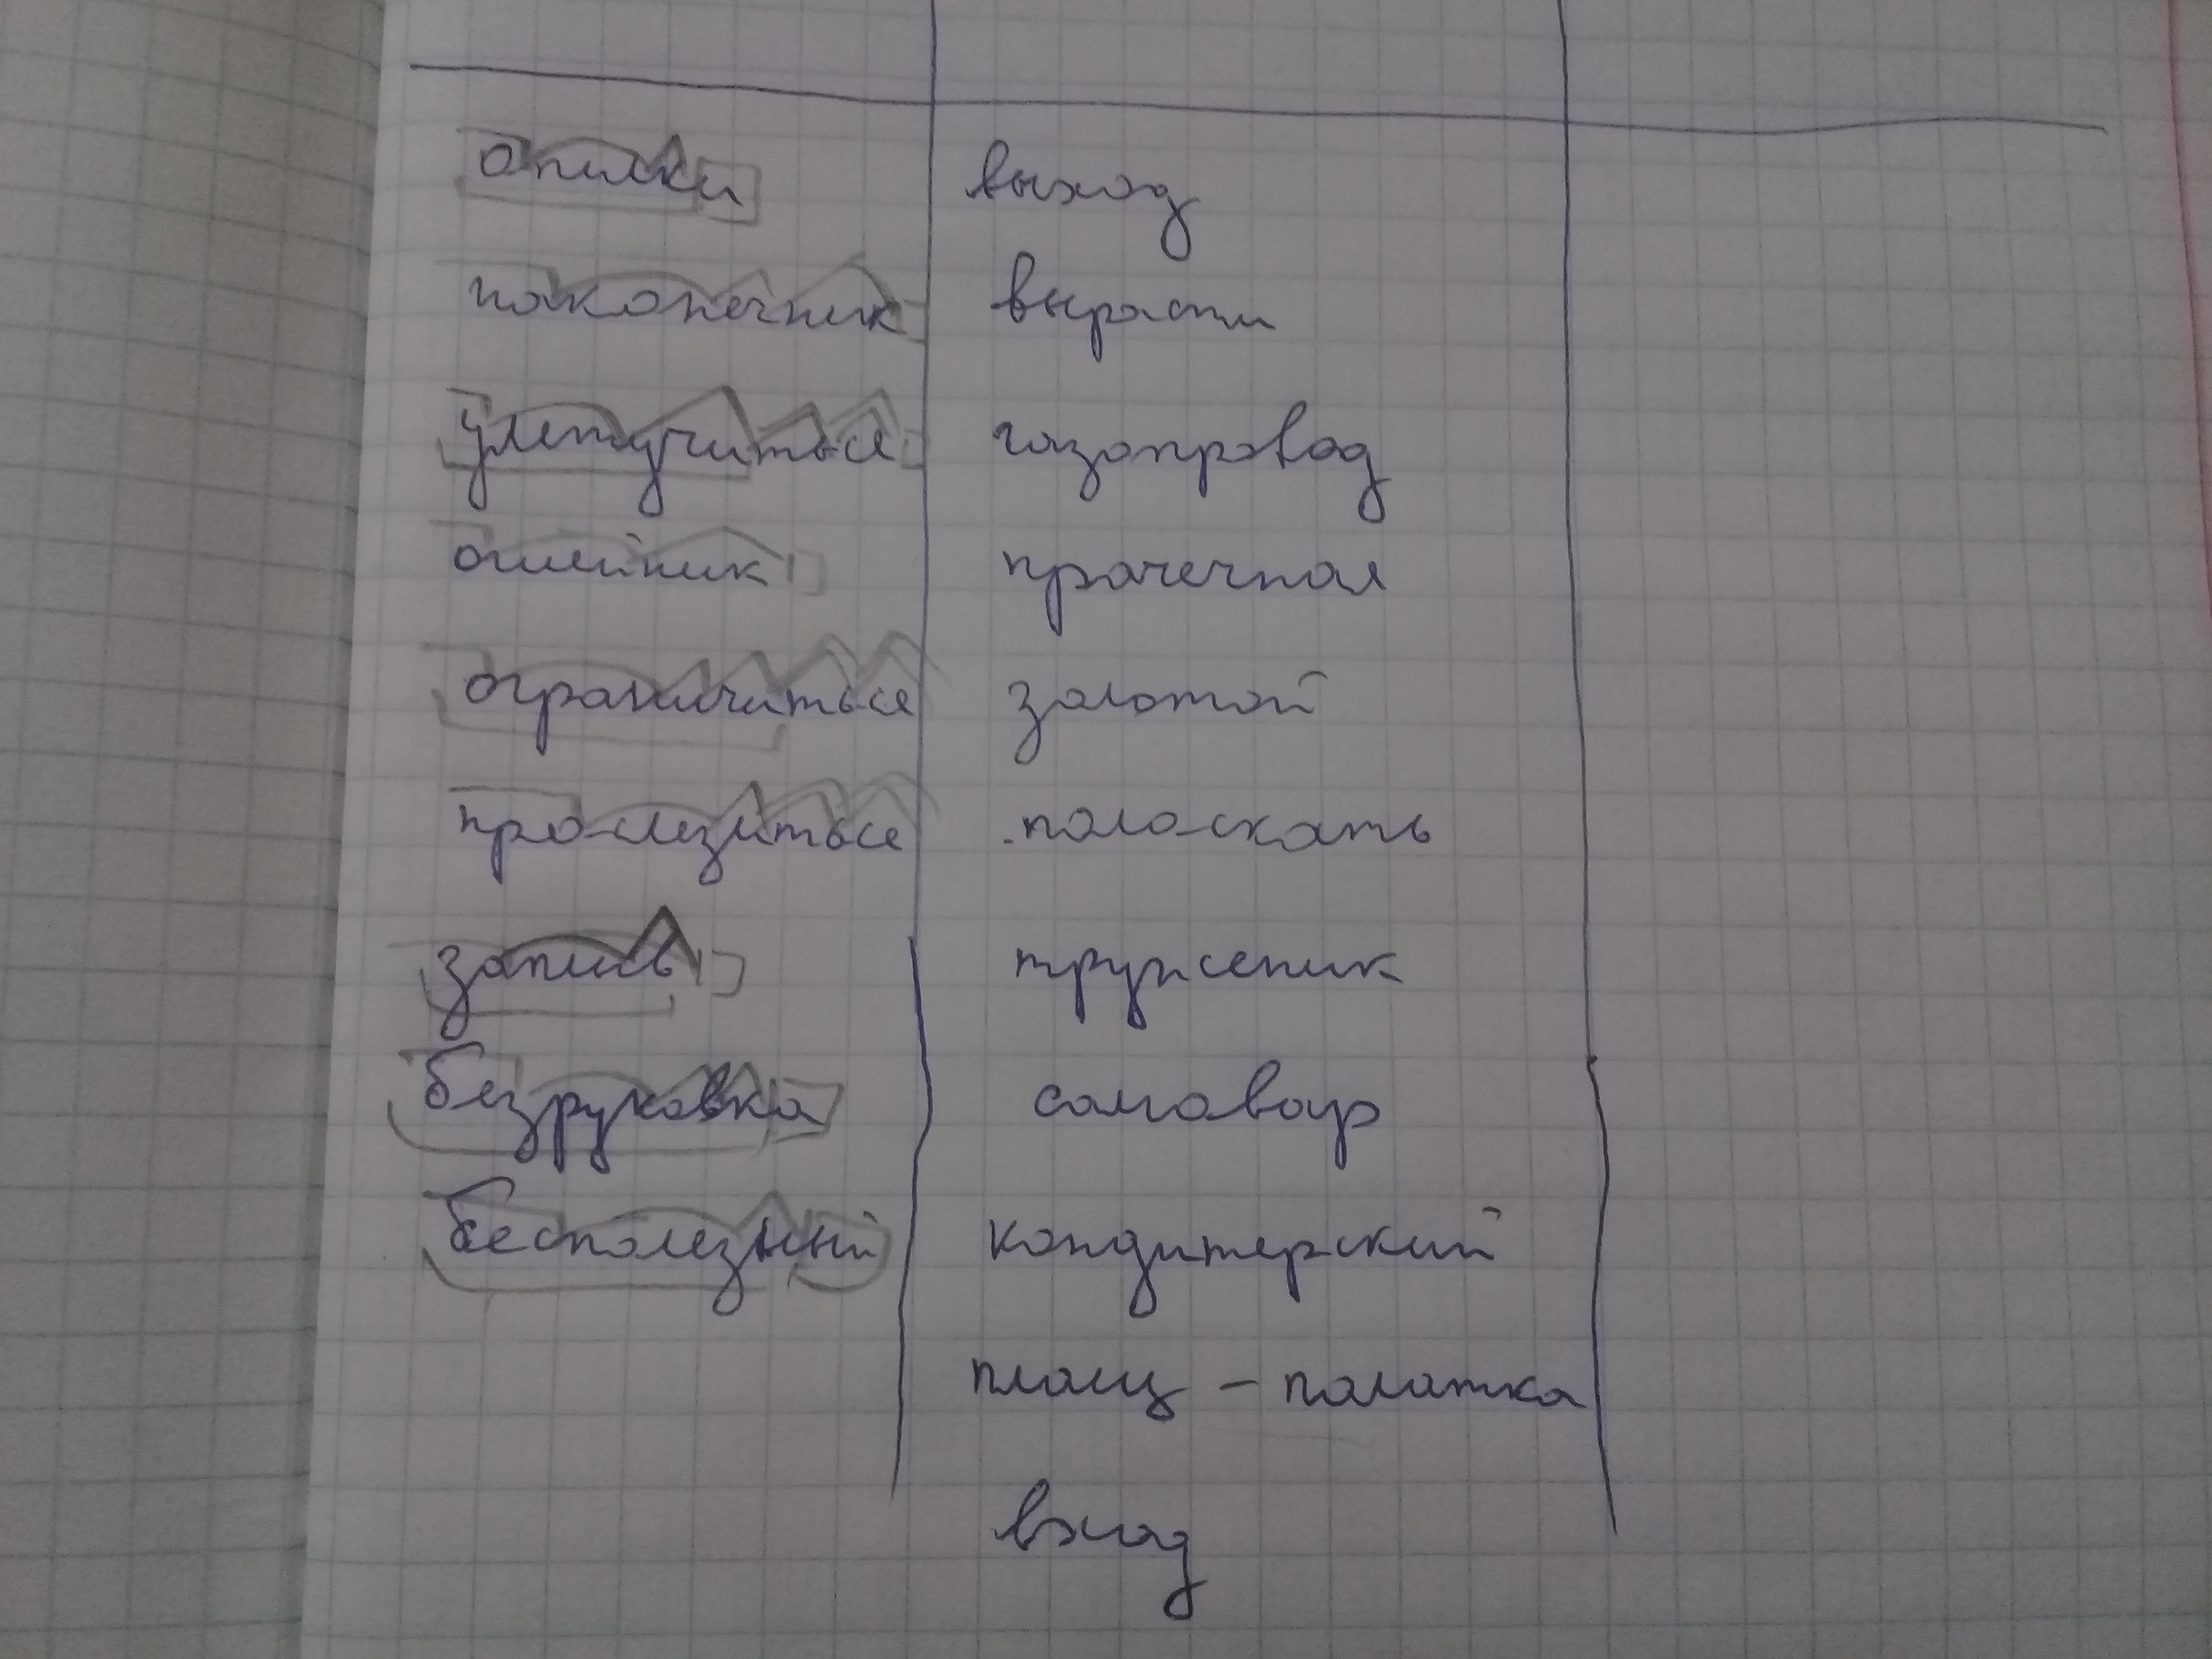 опилки выход
наконечник вырасти
улетучиться газопровод
ошейник прачечная
ограничиться золотой
прослезиться полоскать
запись труженик
безрукавка самовар
бесполезный кондитерский
плащ - палатка
вход